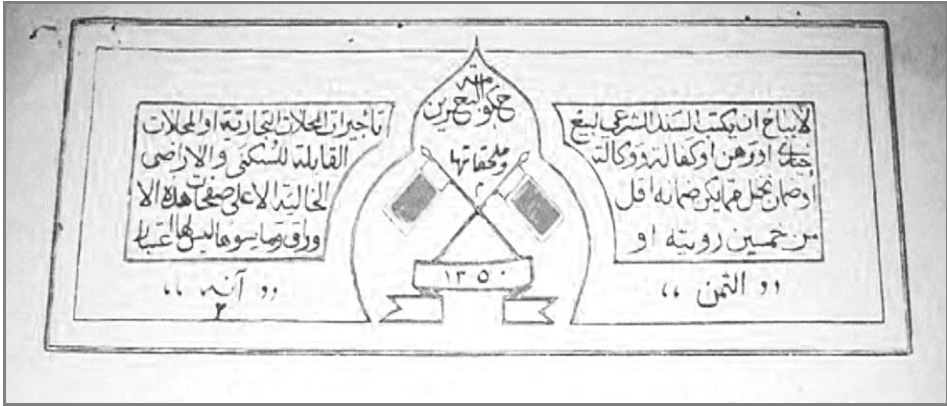 حكومة البحرين
وملحقاتها
١٣٥٠
لا يباح ان يكتب السند الشرعي لبيع
او رهن او كفالة ووكالة
اقل
من خمسين روبيه او
تأجيرات المحلات التجارية او المحلات
القابلة للسكنى والاراضي
الخالية الا على صفحات هذه الا
وراق وما سواها ليس لها اعتبار
،، الثمن ،،
،، آنه ،،
٢